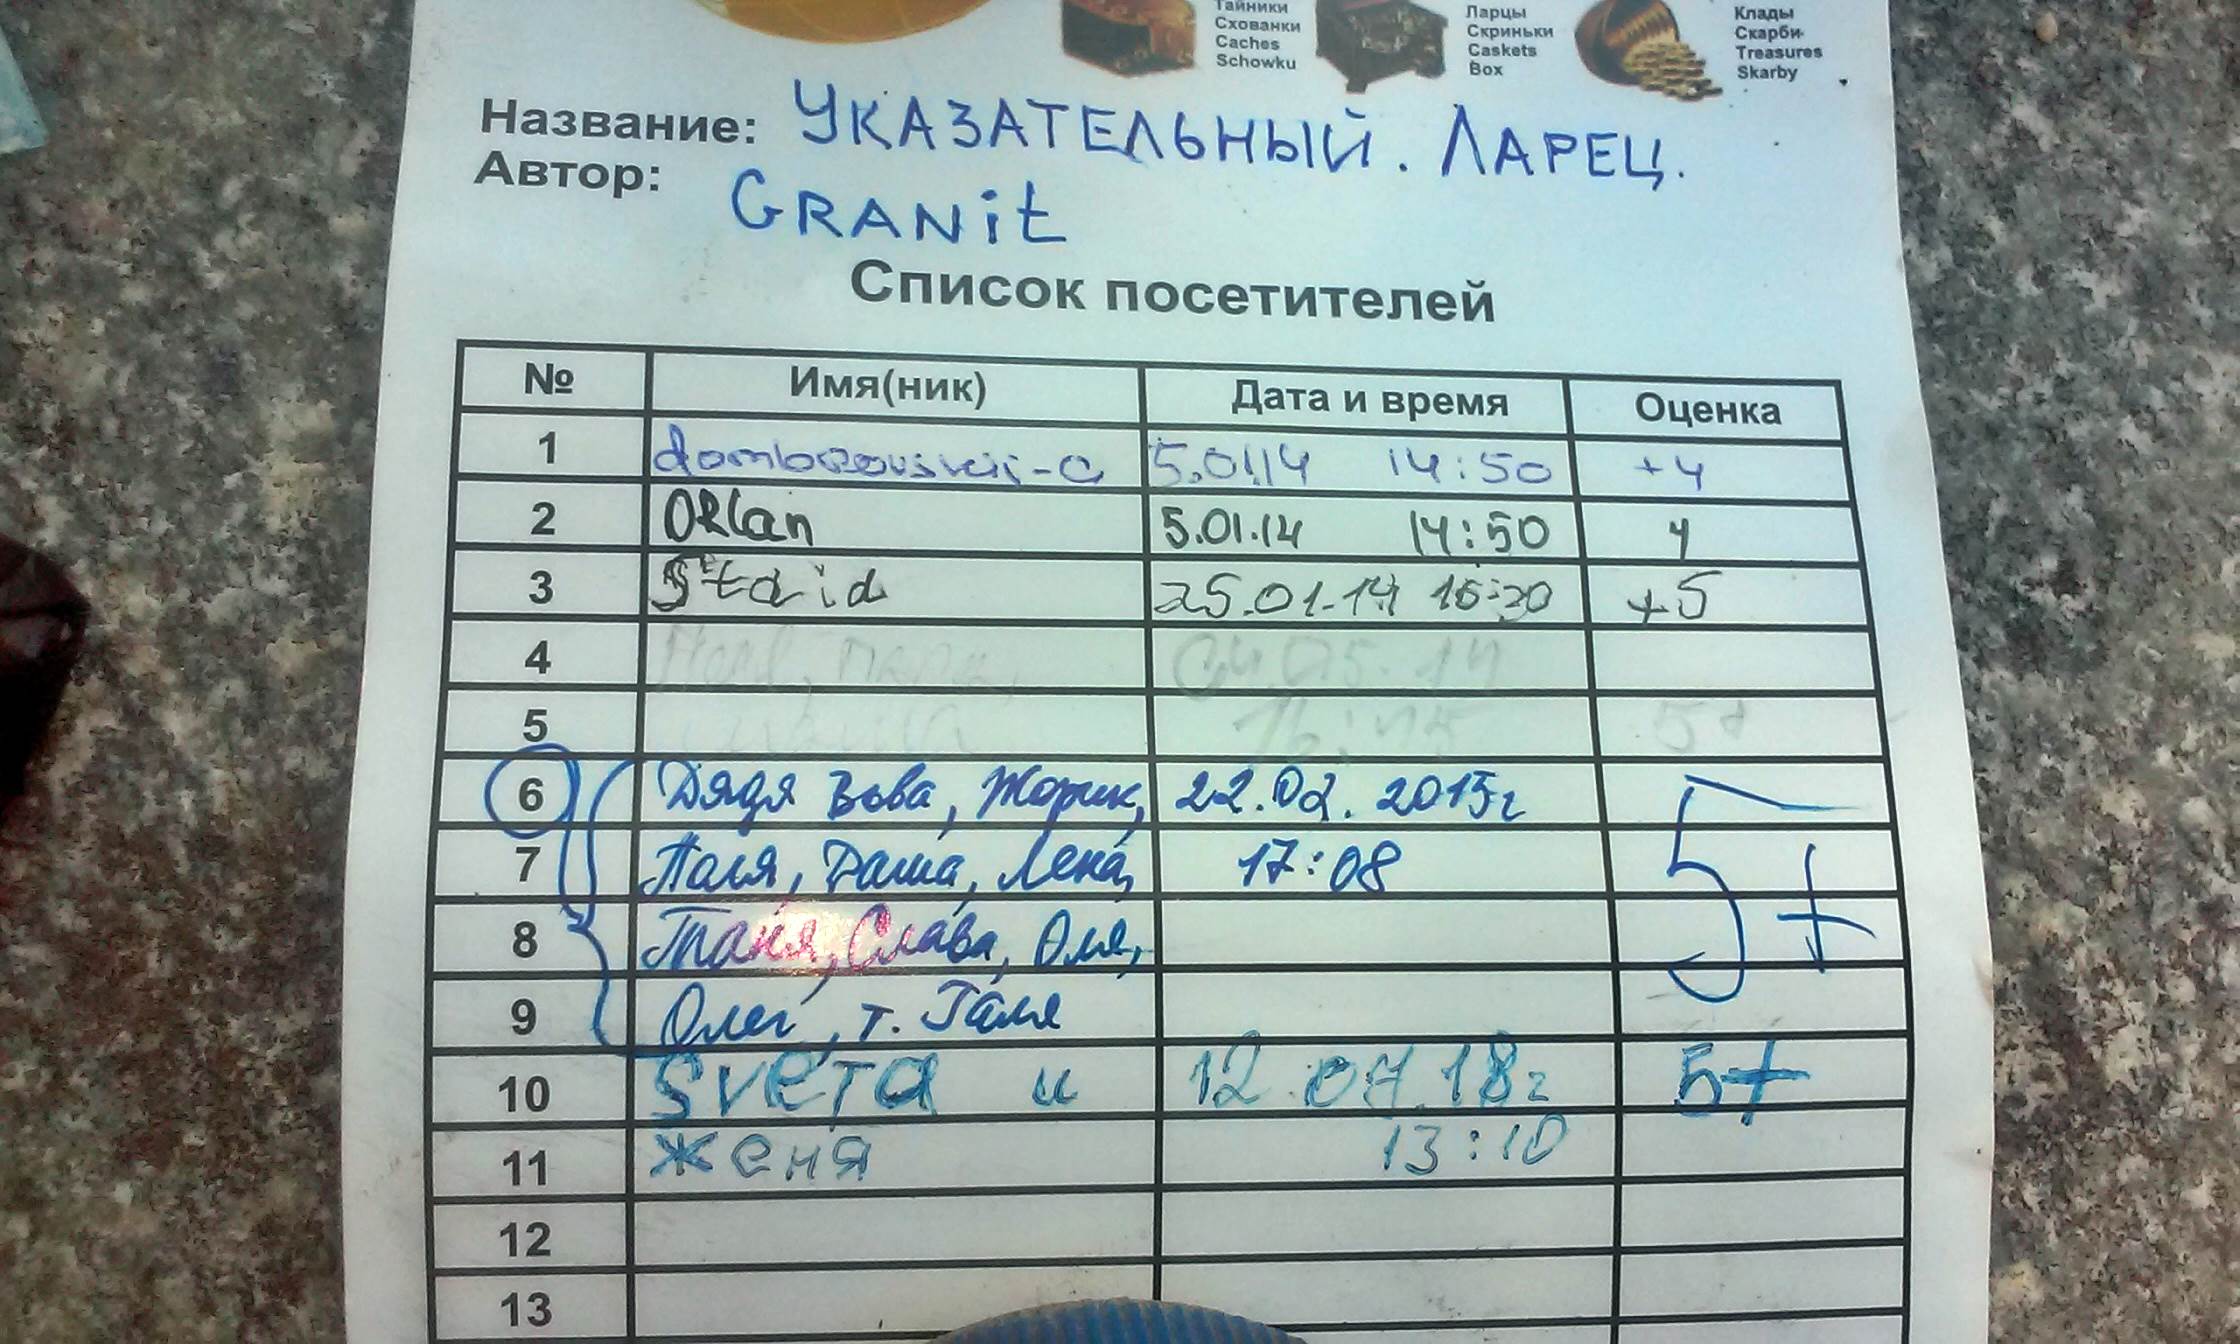 Тайники Ларцы Клады
Схованки Скриньки Скарби
Caches Caskets Treasures
Schowku Box Skarby
Название: УКАЗАТЕЛЬНЫЙ. ЛАРЕЦ.
Автор: GRANit
Список посетителей
№ Имя(ник) Дата и время Оценка
1 5.01.14 14:50 +4
2 ORlan 5.01.14 14:50 4
3 Staid 25.01.14 +5
4 04.05.14
5 5+
6 Дядя Вова, Жорик, 22.02.2015г 5+
7 Поля, Даша, Лена, 17:08
8 Таня, Слава, Оля,
9 Олег, т. Галя
10 SVETA и 12.07.18г 5+
11 Женя 13:10
12
13